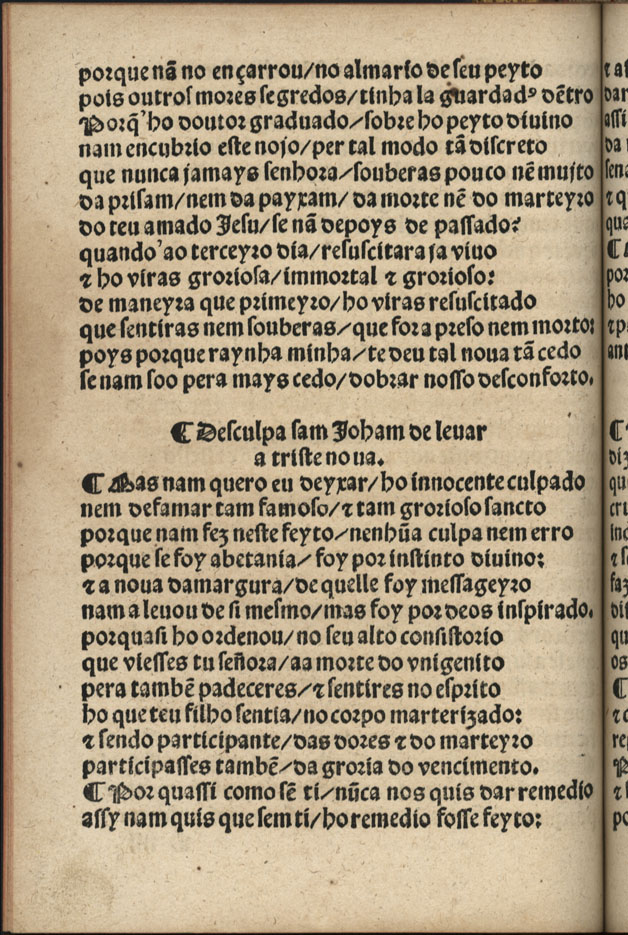 porque nã no ençarrou/no almario de seu peyto
pois outros mores segredos/tinha la guardadꝰ dẽtro
Porq̃ ho doutor graduado/sobre ho peyto diuino
nam encubrio este nojo/per tal modo tã discreto
que nunca jamays senhora/souberas pouco nẽ muito
da prisam/nem da payxam/da morte nẽ do marteyro
do teu amado Jesu/se nã depoys de passado:
quando ao terceyro dia/resuscitara ja viuo
⁊ ho viras groriosa/immortal ⁊ grorioso:
de maneyra que primeyro/ho viras resuscitado
que sentiras nem souberas/que fora preso nem morto:
poys porque raynha minha/te deu tal noua tã cedo
se nam soo pera mays cedo/dobrar nosso desconforto.
¶ Desculpa sam Joham de leuar
a triste noua.
¶ Mas nam quero eu deyxar/ho innocente culpado
nem defamar tam famoso/⁊ tam grorioso sancto
porque nam fez neste feyto/nenhũa culpa nem erro
porque se foy abetania/foy por instinto diuino:
⁊ a noua damargura/de quelle foy messageyro
nam a leuou de si mesmo/mas foy por deos inspirado.
porquasi ho ordenou/no seu alto consistorio
que viesses tu señora/aa morte do vnigenito
pera tambẽ padeceres/⁊ sentires no esprito
ho que teu filho sentia/no corpo marterizado:
⁊ sendo participante/das dores ⁊ do marteyro
participasses tambẽ/da groria do vencimento.
¶ Por quassi como sẽ ti/nũca nos quis dar remedio
assy nam quis que sem ti/ho remedio fosse feyto: